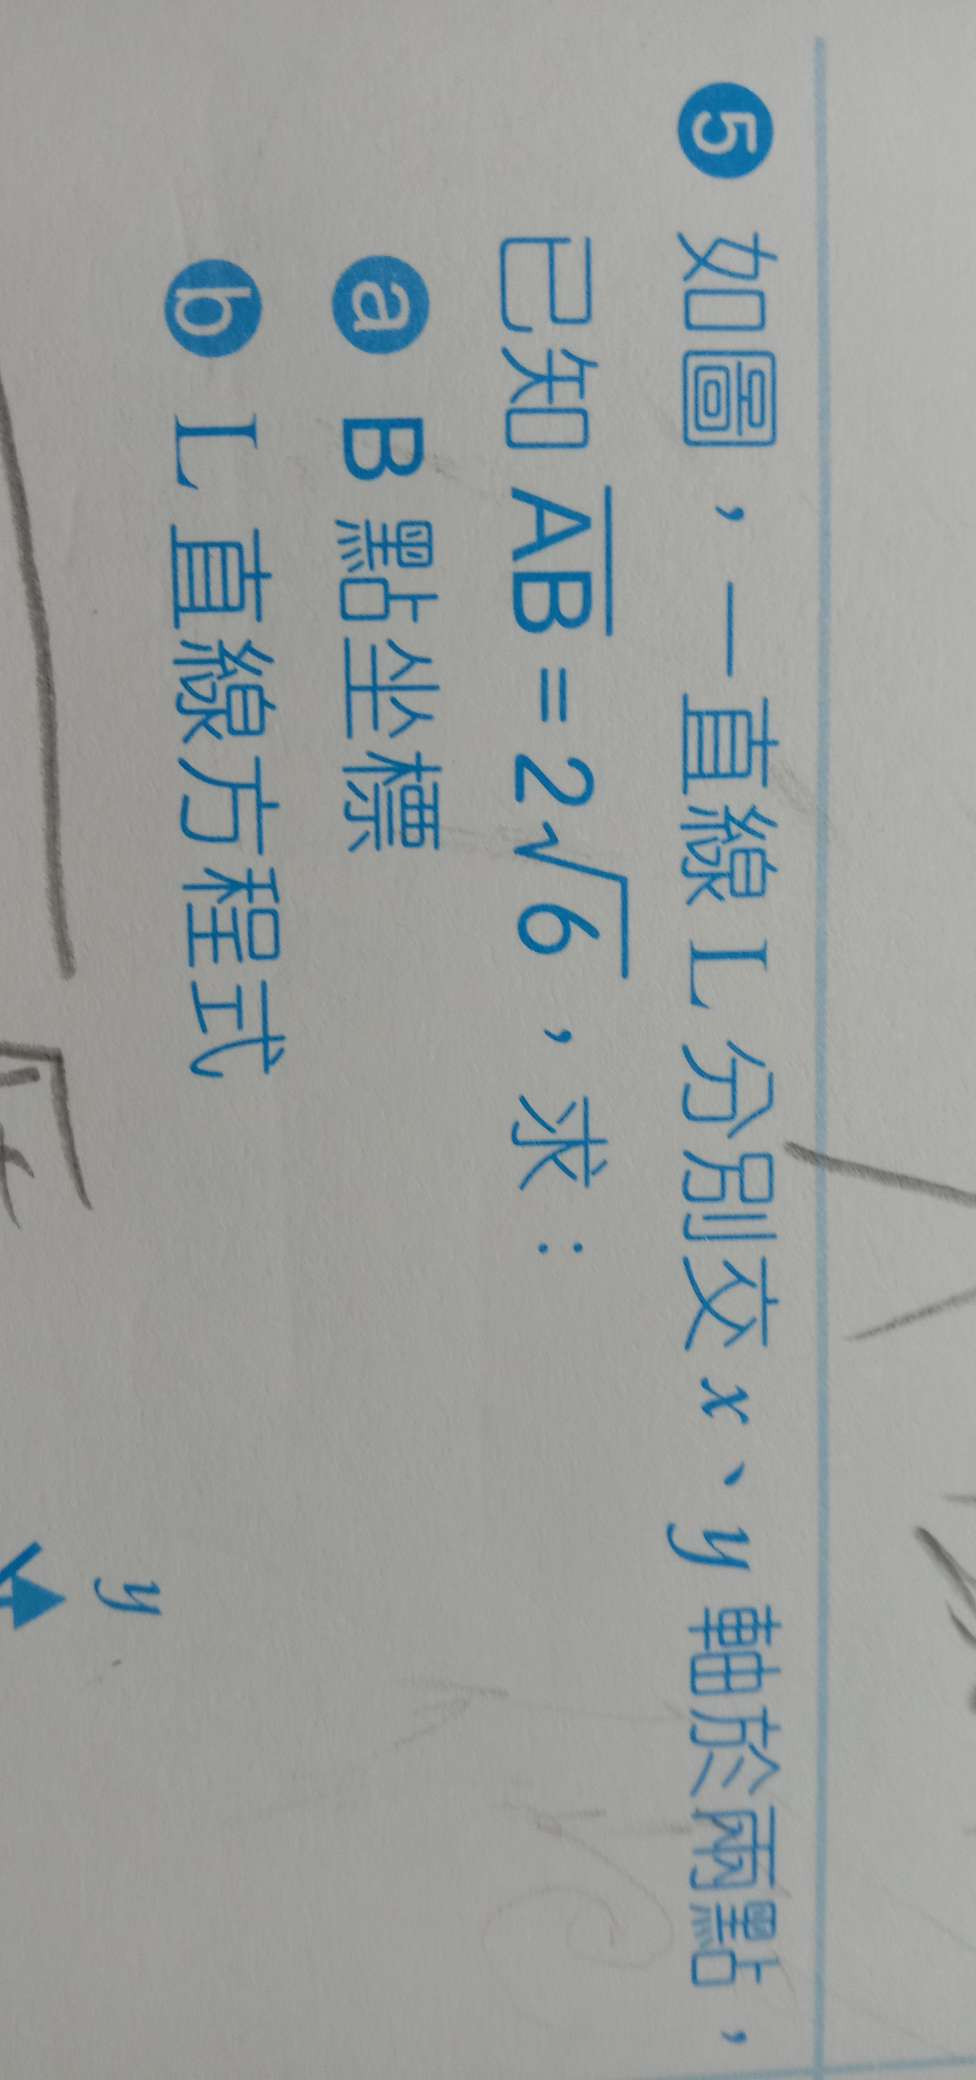 5 如圖，一直線 L 分別交 x、y 軸於兩點，
已知 \overline{AB} = 2√6，求：
a B 點坐標
b L 直線方程式
y